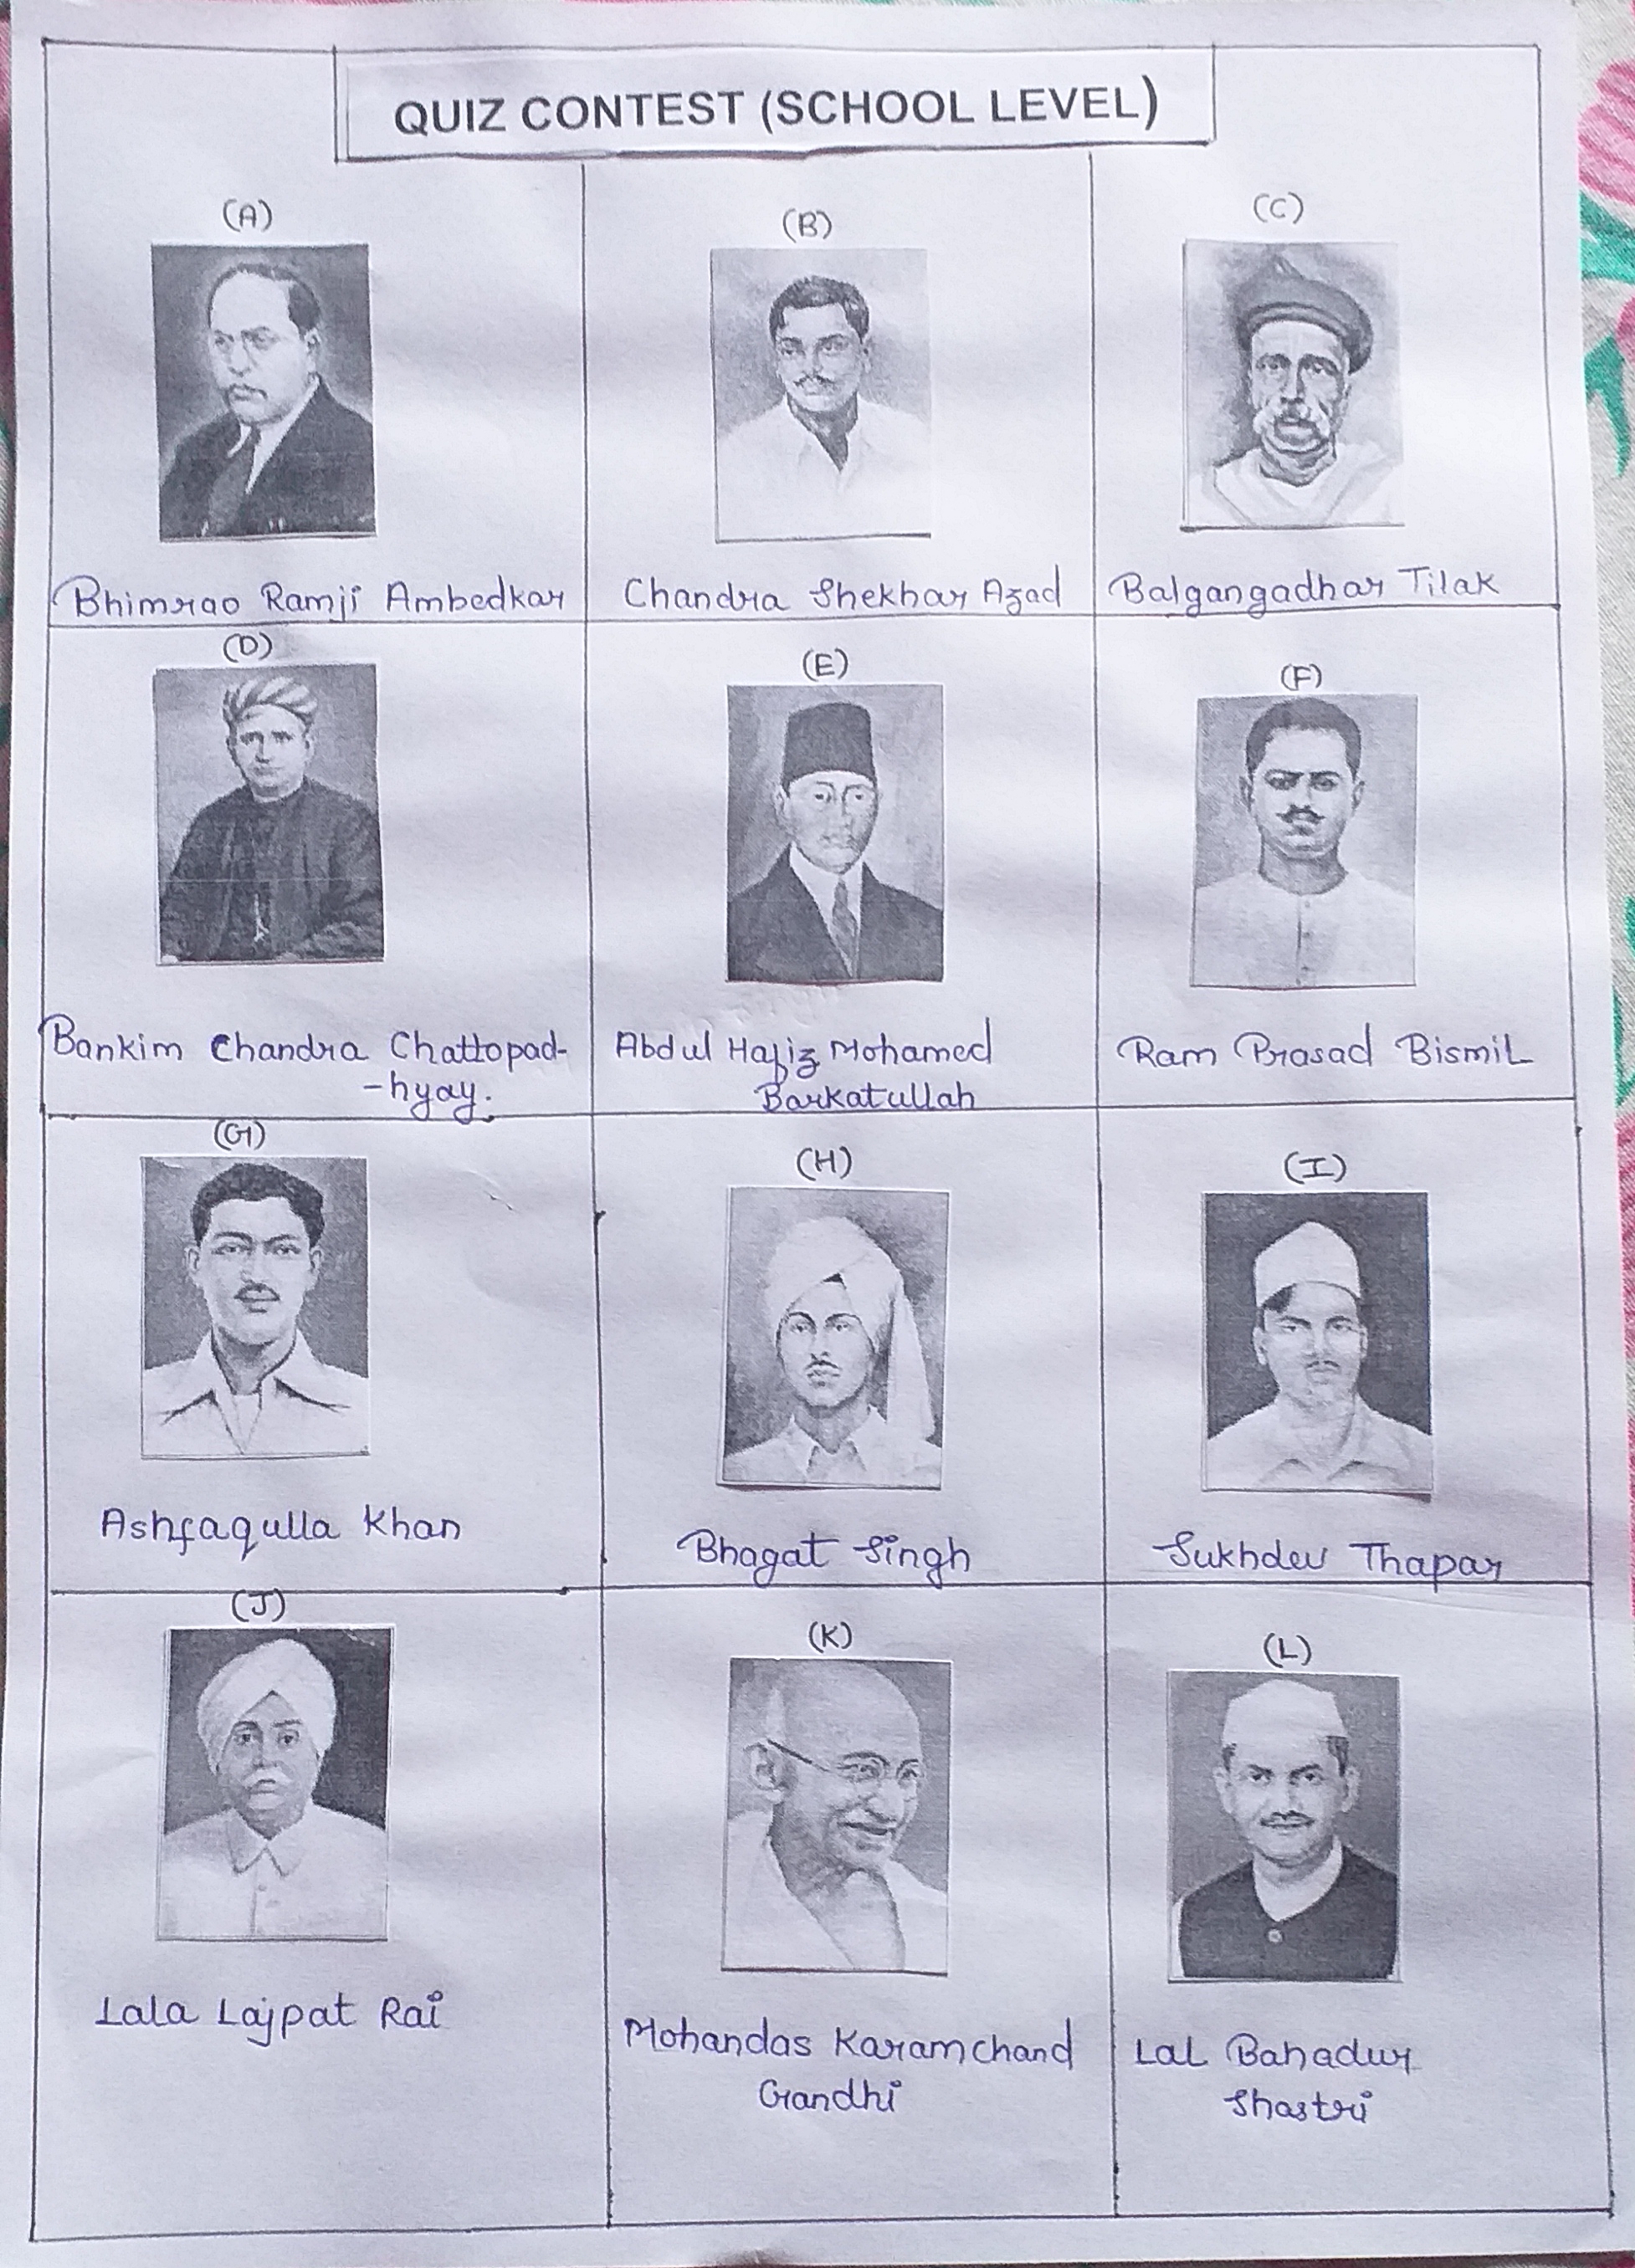 QUIZ CONTEST (SCHOOL LEVEL)
(A)
Bhimrao Ramji Ambedkar
(B)
Chandra Shekhar Azad
(C)
Balgangadhar Tilak
(D)
Bankim Chandra Chattopad-
-hyay.
(E)
Abdul Hafiz Mohamed
Barkatullah
(F)
Ram Prasad Bismil
(G)
Ashfaqulla Khan
(H)
Bhagat Singh
(I)
Sukhdev Thapar
(J)
Lala Lajpat Rai
(K)
Mohandas Karamchand
Gandhi
(L)
Lal Bahadur
Shastri